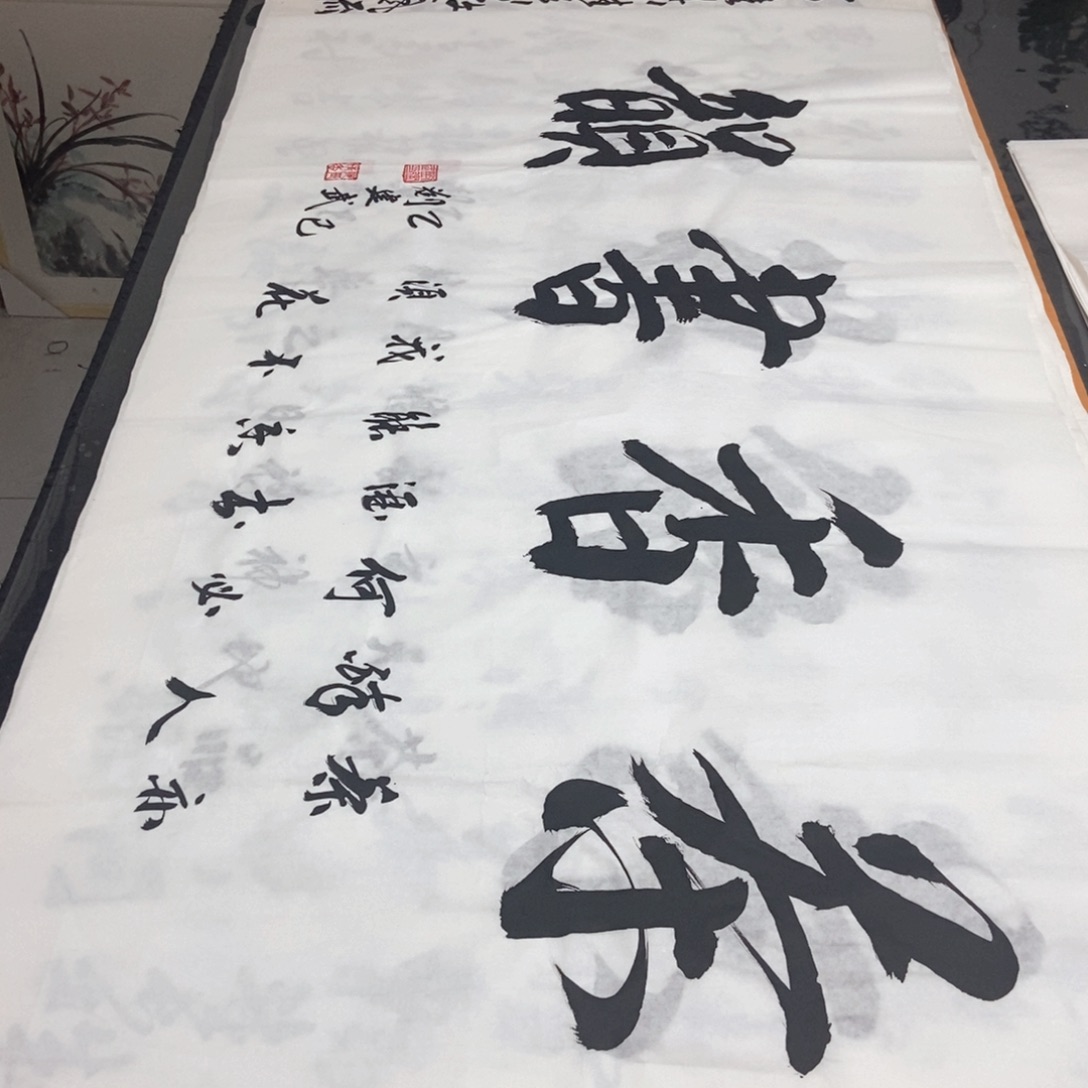 茶香書韻
茶亦
醉人
何必
酒書
能香
我不
須花
乙巳